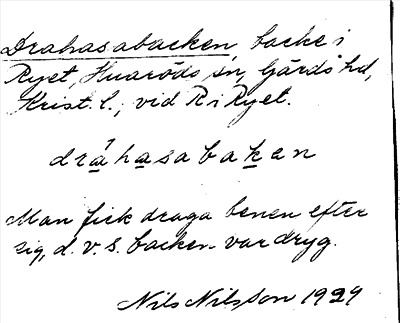 Drahasabacken, backe i
Ryet, Huaröds sn, Gärds hd,
Krist. l., vid R i Ryet.
dràhasabaken
Man fick draga benen efter
sig, d. v. s. backen var dryg.
Nils Nilsson 1929